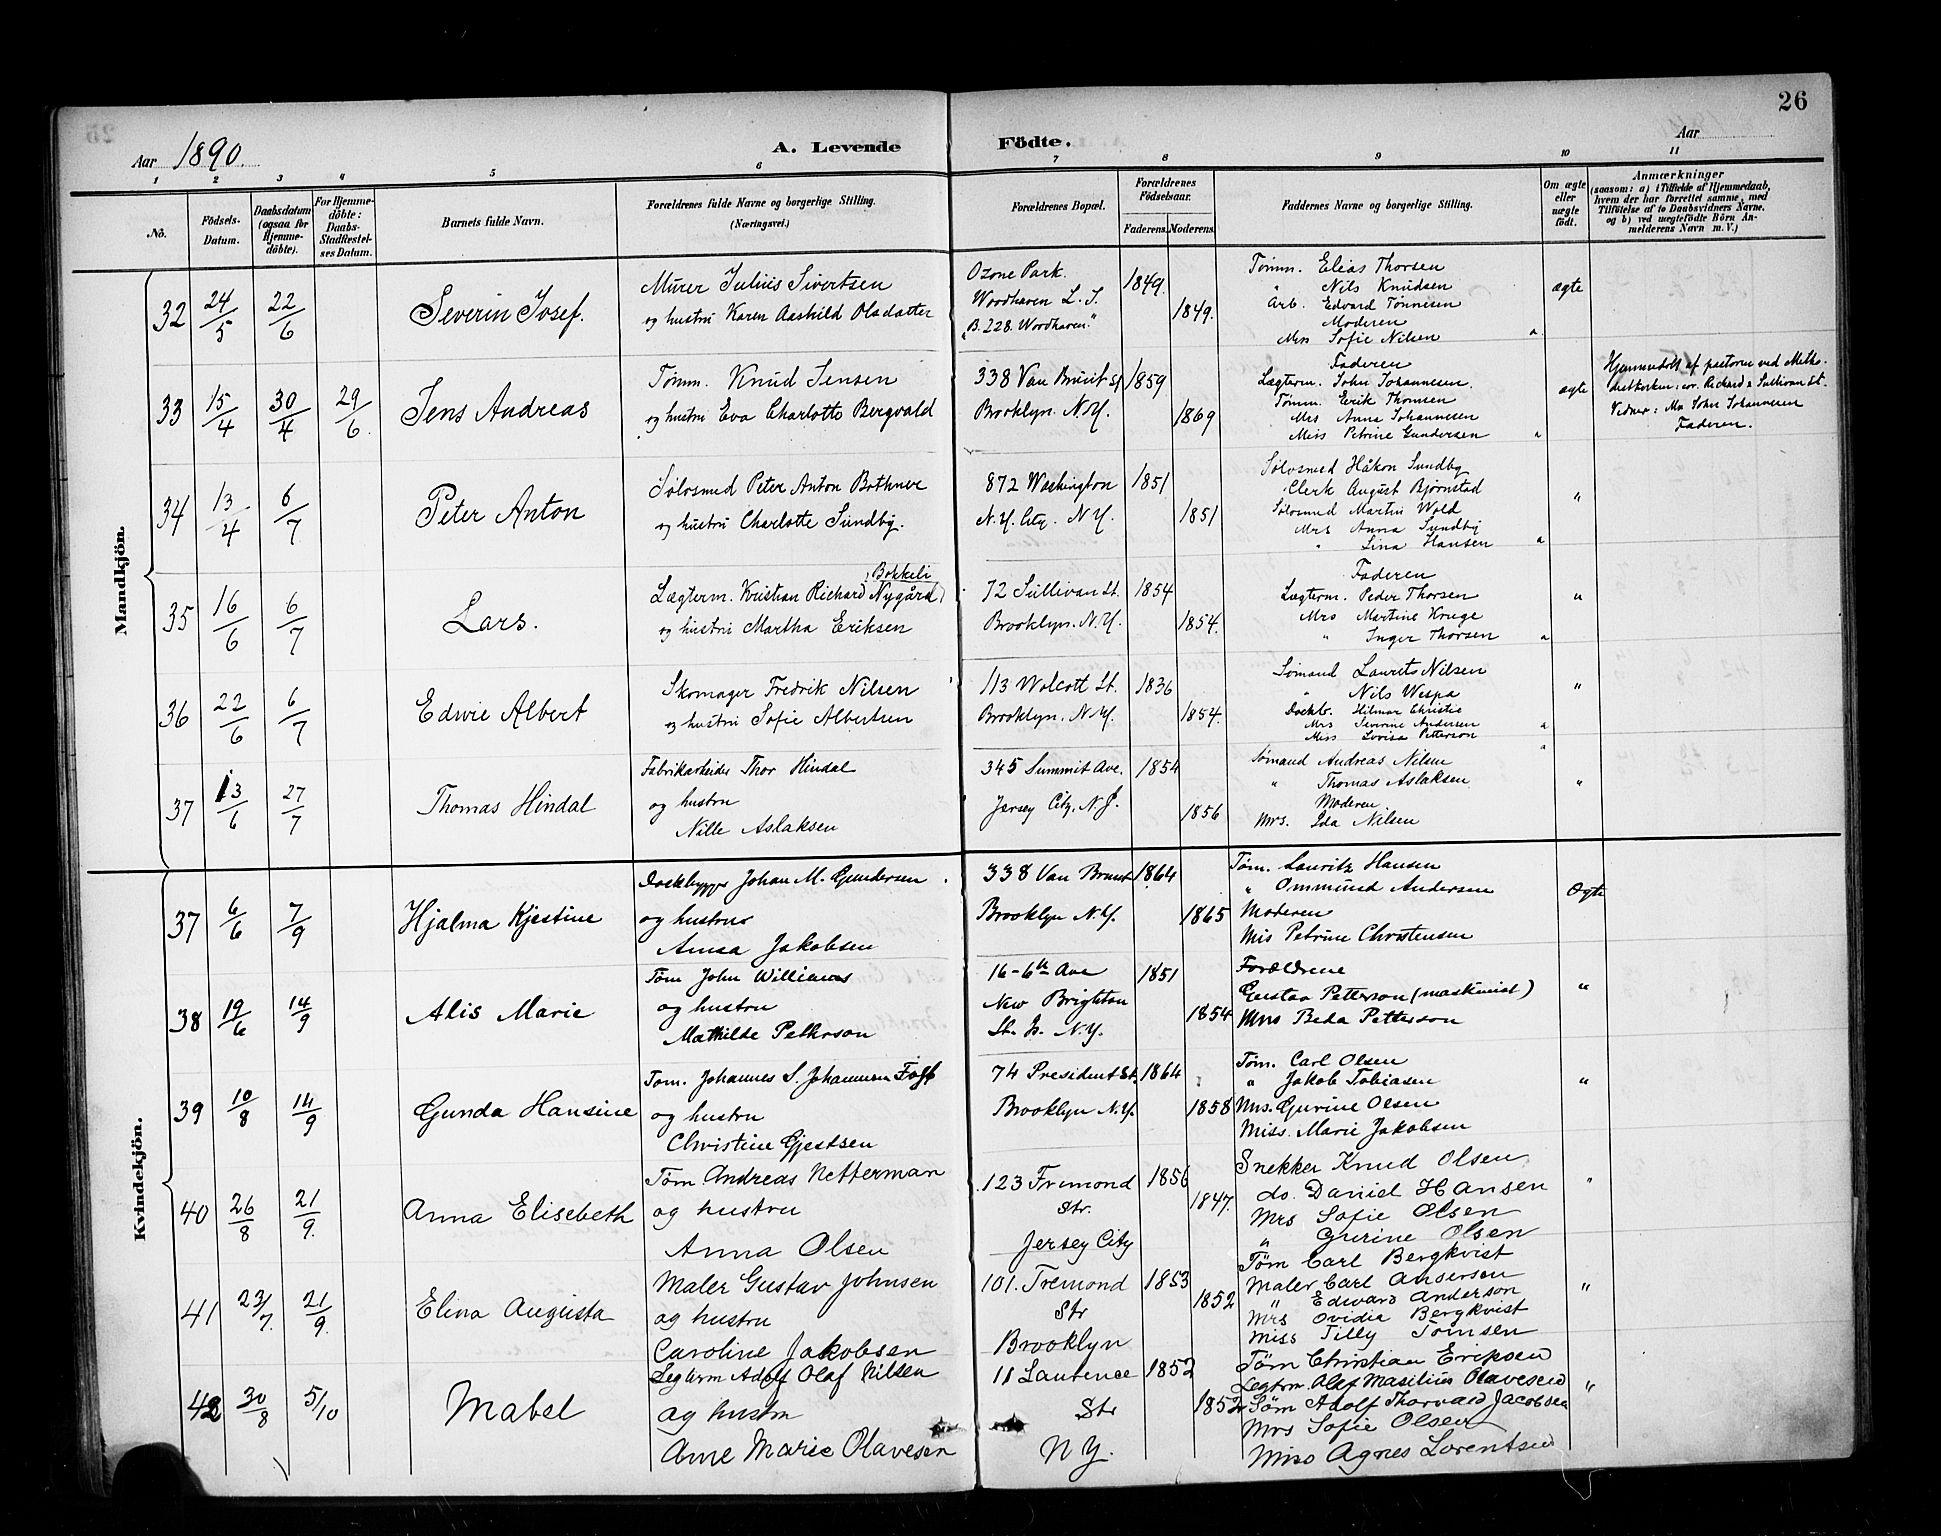 26
Aar 1890. A. Levende Födte. Aar
1 2 3 4 5 6 7 8 9 10 11
No. Födsels-Datum. Daabsdatum (ogsaa for Hjemme-döbte). For Hjemme-döbte: Daabs-Stadfæstel-ses Datum. Barnets fulde Navn. Forældrenes fulde Navne og borgerlige Stilling. (Næringsvei.) Forældrenes Bopæl. Forældrenes Födselsaar. Faderens. Moderens. Faddernes Navne og borgerlige Stilling. Om ægte eller uægte födt. Anmærkninger (saasom: a) i Tilfælde af Hjemmedaab, hvem der har forrettet samme, med Tilföielse af to Daabsvidners Navne. og b) ved uægtefödte Börn An-melderens Navn m.V.)
Mandkjön.
32 24/5 22/6 Severin Josef.
Murer Julius Sivertsen
og hustru Karen Aashild Olsdatter
Ozone Park.
Woodhaven L. I.
"B. 228. Woodhaven."
1849. 1849.
Tømm. Elias Thorsen
" Nils Knudsen
Arb. Edvard Tønnesen
Moderen
Mrs Sofie Nilsen
ægte
33 15/4 30/4 29/6. Jens Andreas
Tømm. Knud Jensen
og hustru Eva Charlotte Bergvald
338 Van Brunt St
Brooklyn. N.Y.
1859 1869
Faderen
Lægterm. John Johannesen.
Tømm. Erik Thomsen
Mrs Anna Johannesen
Miss Petrine Gundersen
ægte
Hjemmedöbt af pastoren ved Metho-
distkirken, cor. Richard & Sullivan St.
Vidner: Mrs John Johannesen
Faderen.
34 13/4 6/7 Peter Anton
Sølvsmed Peter Anton Bothner
og hustru Charlotte Sundby.
872 Washington
N.Y. City. N.Y.
1851 1851
Sølvsmed Håkon Sundby
Clerk August Bjørnstad
Sølvsmed Martin Wold
Mrs Anna Sundby
" Lina Hansen
"
35 16/6 6/7 Lars.
Bokkeli
Lægterm. Kristian Richard Nygård
og hustru Martha Eriksen
72 Sullivan St.
Brooklyn. N.Y.
1854 1854.
Faderen
Lægterm. Peder Thorsen
Mrs Martine Kruge
" Inger Thorsen
"
36 22/6 6/7 Edwie Albert
Skomager Fredrik Nilsen
og hustru Sofie Albertsen
113 Wolcott St.
Brooklyn. N.Y.
1836 1854.
Sømand Laurits Nilsen
" Nils Wespa
Dockb. Hilmar Christie
Mrs Severine Andersen
Miss Lovisa Petterson
"
37 13/6 27/7 Thomas Hindal
Fabrikarbeider Thor Hindal
og hustru
Nille Aslaksen
345 Summit Ave.
Jersey City, N.J.
1854 1856
Sømand Andreas Nilsen
" Thomas Aslaksen
Moderen
Mrs. Ida Nilsen
"
Kvindekjön.
37 6/6 7/9 Hjalma Kjestine
Dockbygger Johan M. Gundersen
og hustru
Anna Jakobsen
338 Van Brunt
Brooklyn N.Y.
1864 1865
Tøm. Lauritz Hansen
" Ommund Andersen
Moderen
Mis Petrine Christensen
Ægte
38 19/6 14/9 Alis Marie
Tøm John Williams
og hustru
Mathilde Petterson
16-6th Ave
New Brighton
St. Is. N.Y.
1851 1854
Forældrene
Gustav Petterson (maskinist)
Mrs Beda Petterson
"
39 10/8 14/9 Gunda Hansine
Tom. Johannes S. Johannesen
og hustru
Christine Gjestsen
74 President St.
Brooklyn N.Y.
1864 1858
Tøm. Carl Olsen
" Jakob Tobiasen
Mrs. Gurine Olsen
Miss. Marie Jakobsen
"
40 26/8 21/9. Anna Elisebeth
Tøm. Andreas Netterman
og hustru
Anna Olsen
123 Fremond
Str.
Jersey City
1856 1847.
Snekker Knud Olsen
do. Daniel Hansen
Mrs Sofie Olsen
" Gurine Olsen
"
41 23/7. 21/9. Elina Augusta
Maler Gustav Johnsen
og hustru
Caroline Jakobsen
101. Tremond
Str
Brooklyn
1853 1852
Tøm Carl Bergkvist
Maler Carl Andersen
" Edward Anderson
Mrs Ovidia Bergkvist
Miss Tilly Tomsen
"
42 30/8 5/10 Mabel
Legterm Adolf Olaf Nilsen
og hustru
Ane Marie Olavesen
11 Laurence
Str
N Y.
1852 1852
Tøm Christian Eriksen
Legtrm. Olaf Masilius Olavesen
Søm Adolf Thorvald Jacobsen
Mrs Sofie Olsen
Miss Agnes Lorentsen
"